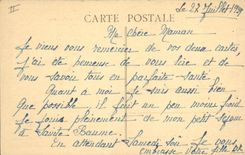 II
Le 22 Juillet 1939
CARTE POSTALE
Ma chère Maman
Je viens vous remercier de vos deux cartes,
j'ai été heureuse de vous lire et de
vous savoir tous en parfaite santé
Quant à moi je suis aussi bien
que possible il fait un peu moins froid.
Je jouis pleinement de mon petit séjour
à Sainte-Baume.
En attendant Samedi soir Je vous
embrasse votre fille